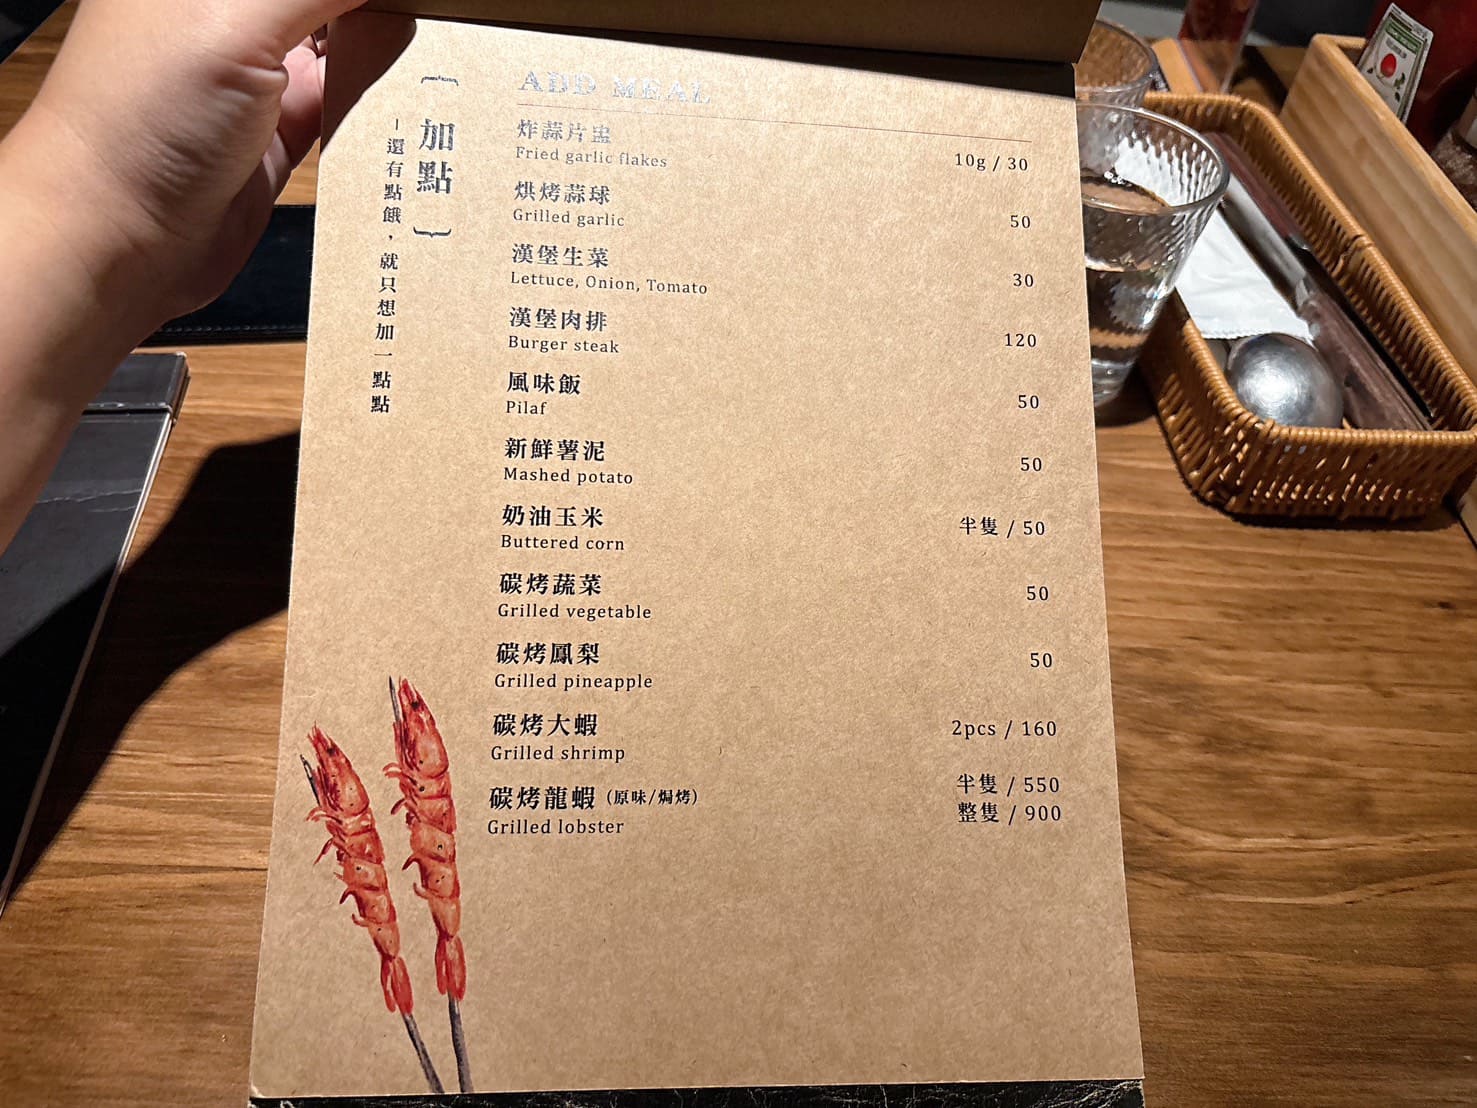 ADD MEAL
加點
－還有點餓，就只想加一點點
炸蒜片盅
Fried garlic flakes
10g / 30
烘烤蒜球
Grilled garlic
50
漢堡生菜
Lettuce, Onion, Tomato
30
漢堡肉排
Burger steak
120
風味飯
Pilaf
50
新鮮薯泥
Mashed potato
50
奶油玉米
Buttered corn
半隻 / 50
碳烤蔬菜
Grilled vegetable
50
碳烤鳳梨
Grilled pineapple
50
碳烤大蝦
Grilled shrimp
2pcs / 160
碳烤龍蝦（原味/焗烤）
Grilled lobster
半隻 / 550
整隻 / 900